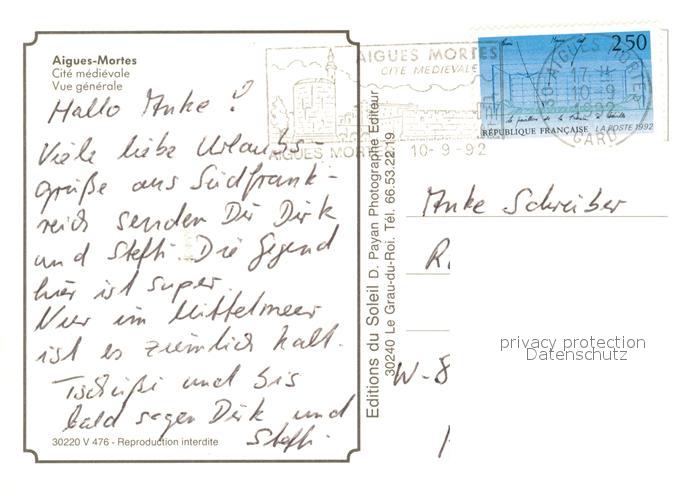 Aigues-Mortes
Cité médiévale
Vue générale
Hallo Anke !
Viele liebe Urlaubs-
grüße aus Südfrank-
reich senden Dir Dirk
und Steffi. Die Gegend
hier ist super.
Nur im Mittelmeer
ist es ziemlich kalt.
Tschüßi und bis
bald sagen Dirk und
Steffi.
30220 V 476 - Reproduction interdite
Editions du Soleil D. Payan Photographe Editeur
30240 Le Grau-du-Roi. Tél. 66.53.22.19
AIGUES MORTES
CITE MEDIEVALE
AIGUES MORTES
10-9-92
2,50
30 AIGUES MORTES
17 H
10-9
1992
GARD
RÉPUBLIQUE FRANÇAISE LA POSTE 1992
Anke Schreiber
R
W-8
privacy protection
Datenschutz